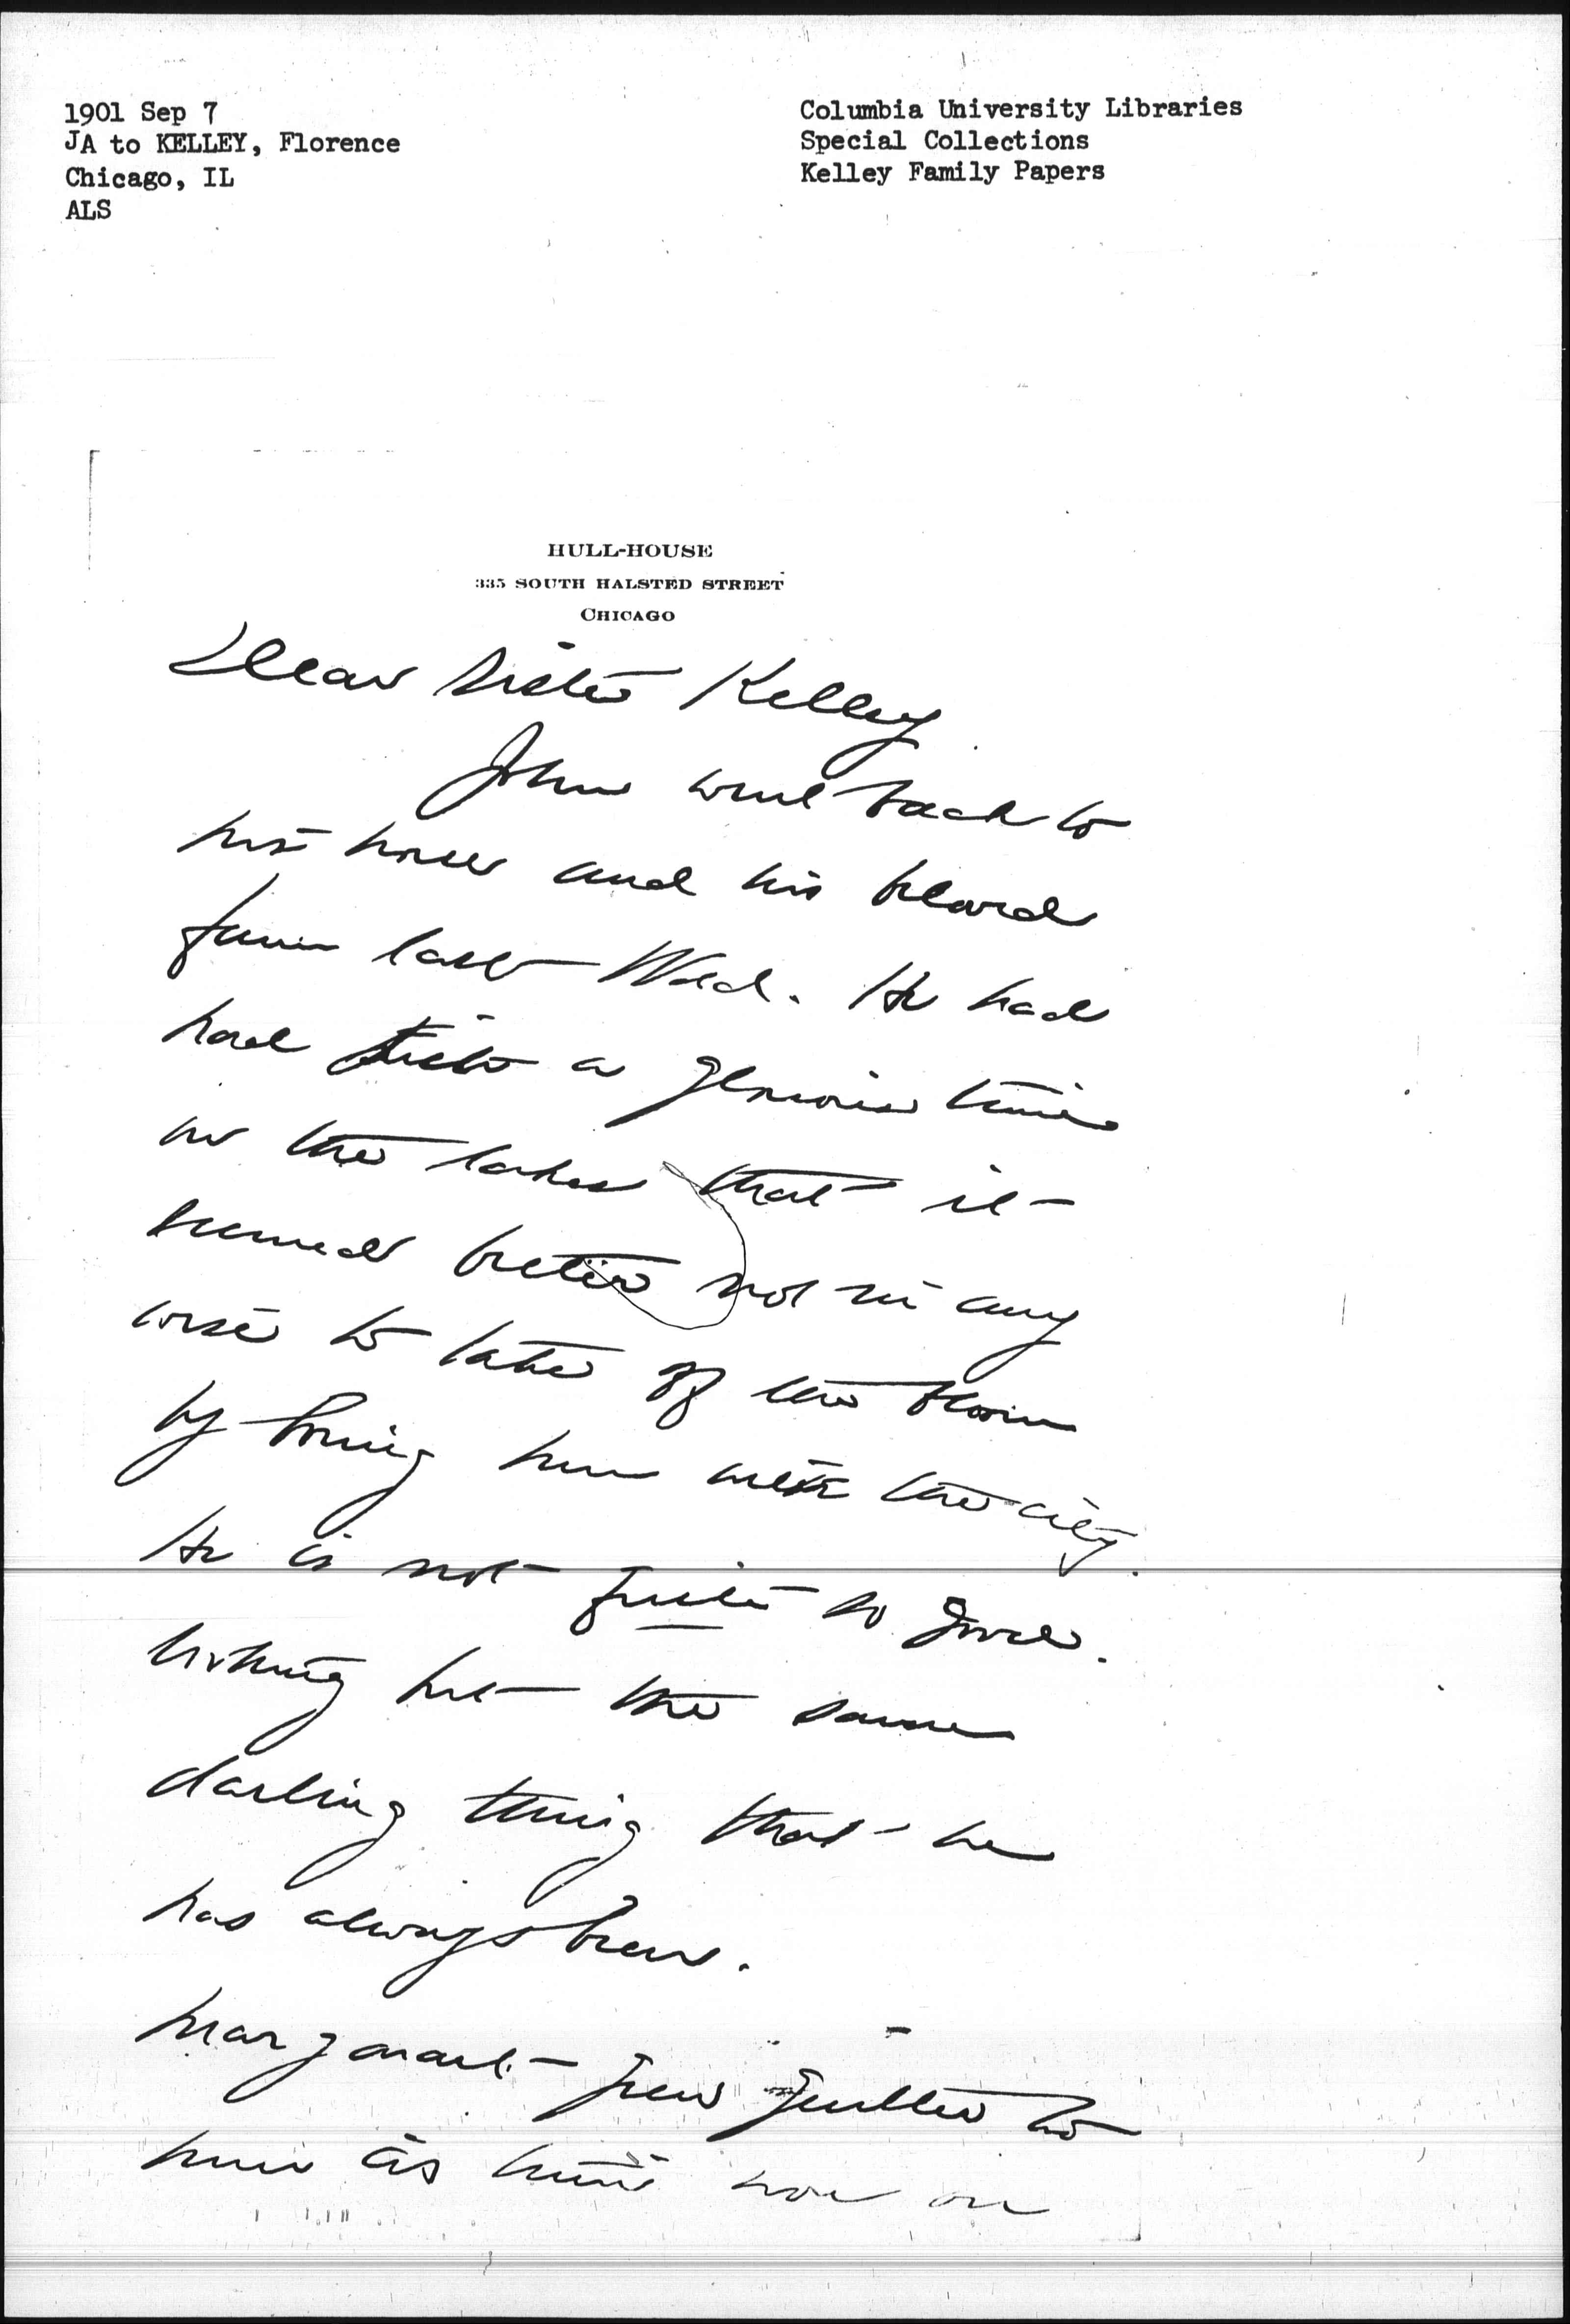 1901 Sep 7
JA to KELLEY, Florence
Chicago, IL
ALS
Columbia University Libraries
Special Collections
Kelley Family Papers
HULL-HOUSE
335 SOUTH HALSTED STREET
CHICAGO
Dear Sister Kelley
John went back to
his horse and his beloved
farm last Wed. He had
had such a glorious time
in the lakes that it
seemed better not in any
wise to take off the bloom
by boring him with the city.
He is not quite so good
looking but the same
darling thing that he
has always been.
Margaret grew gentler to
him as time